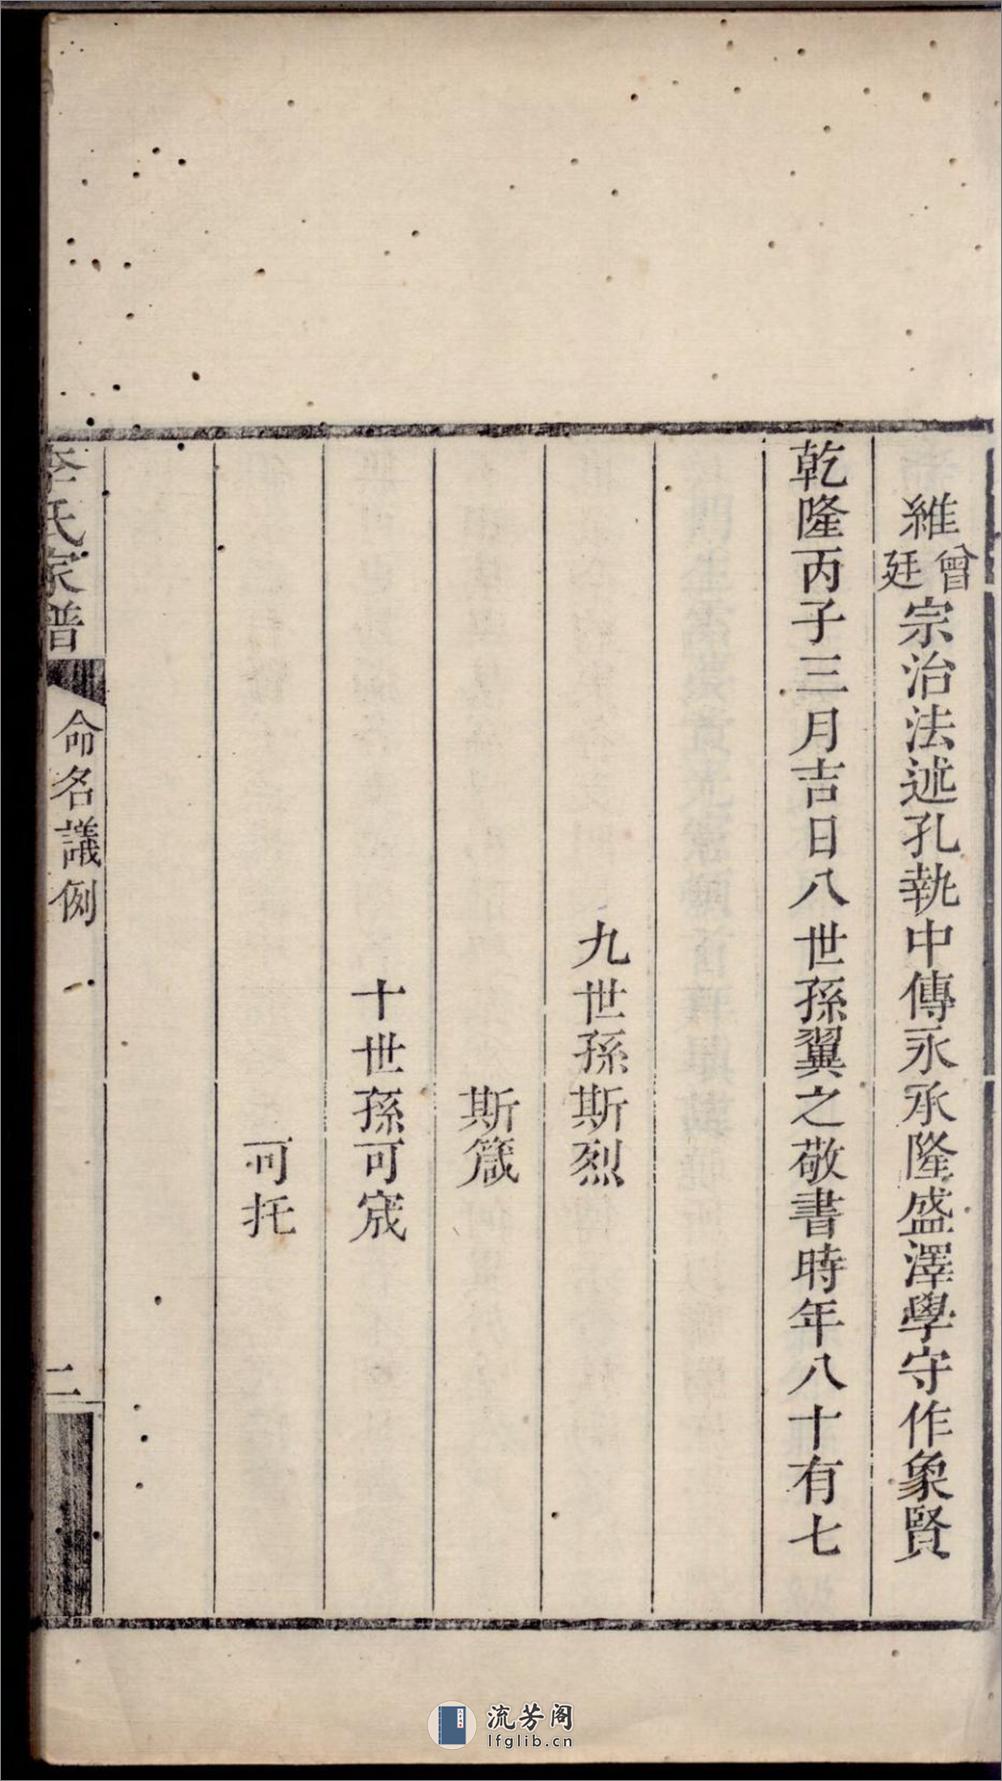 維曾廷宗治法述孔執中傳永承隆盛澤學守作象賢
乾隆丙子三月吉日八世孫翼之敬書時年八十有七
九世孫斯烈
斯箴
十世孫可宬
可托
李氏家譜
命名議例
二
流芳阁
lfglib.cn